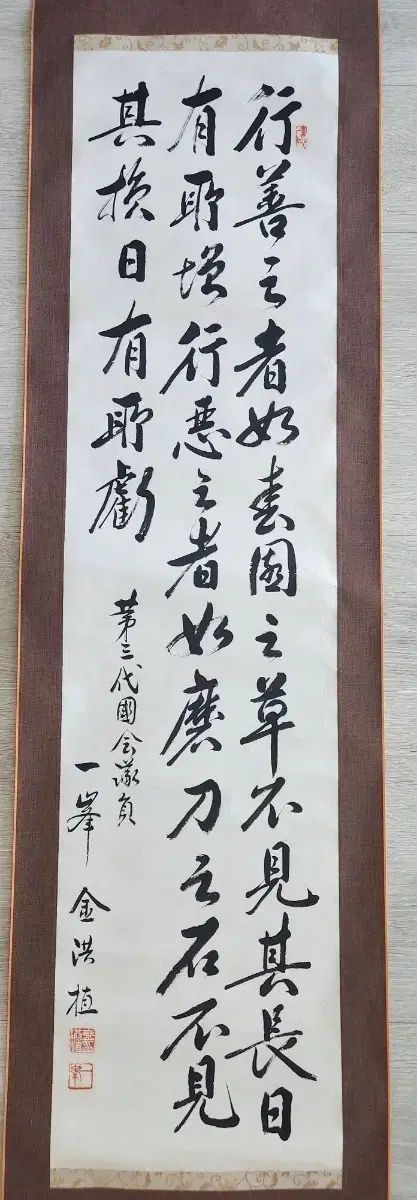 行善之者如春園之草不見其長日
有所增行惡之者如磨刀之石不見
其損日有所虧
第三代國会議員
一峯 金洪植